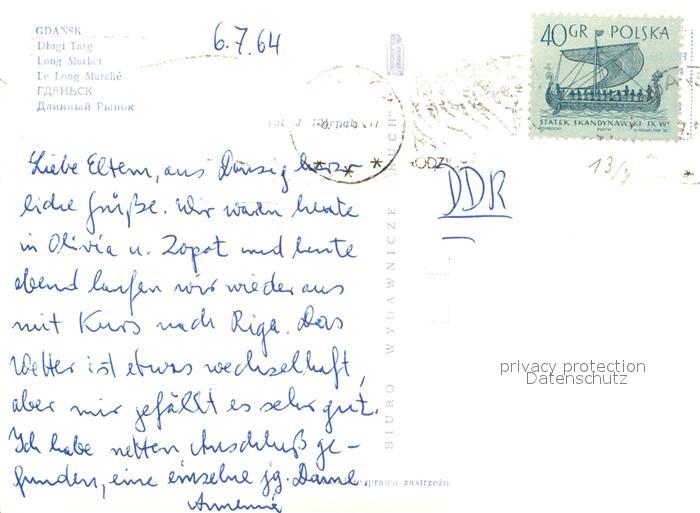 GDAŃSK
Długi Targ
Long Market
Le Long Marché
ГДАНЬСК
Длинный Рынок
6.7.64
40GR POLSKA
STATEK SKANDYNAWSKI IX W.
13/7
DDR
Liebe Eltern, aus Danzig herz-
liche Grüße. Wir waren heute
in Olivia u. Zopot und heute
abend laufen wir wieder aus
mit Kurs nach Riga. Das
Wetter ist etwas wechselhaft,
aber mir gefällt es sehr gut.
Ich habe netten Anschluß ge-
funden, eine einzelne jg. Dame.
BIURO WYDAWNICZE "RUCH"
privacy protection
Datenschutz
zastrzeżo